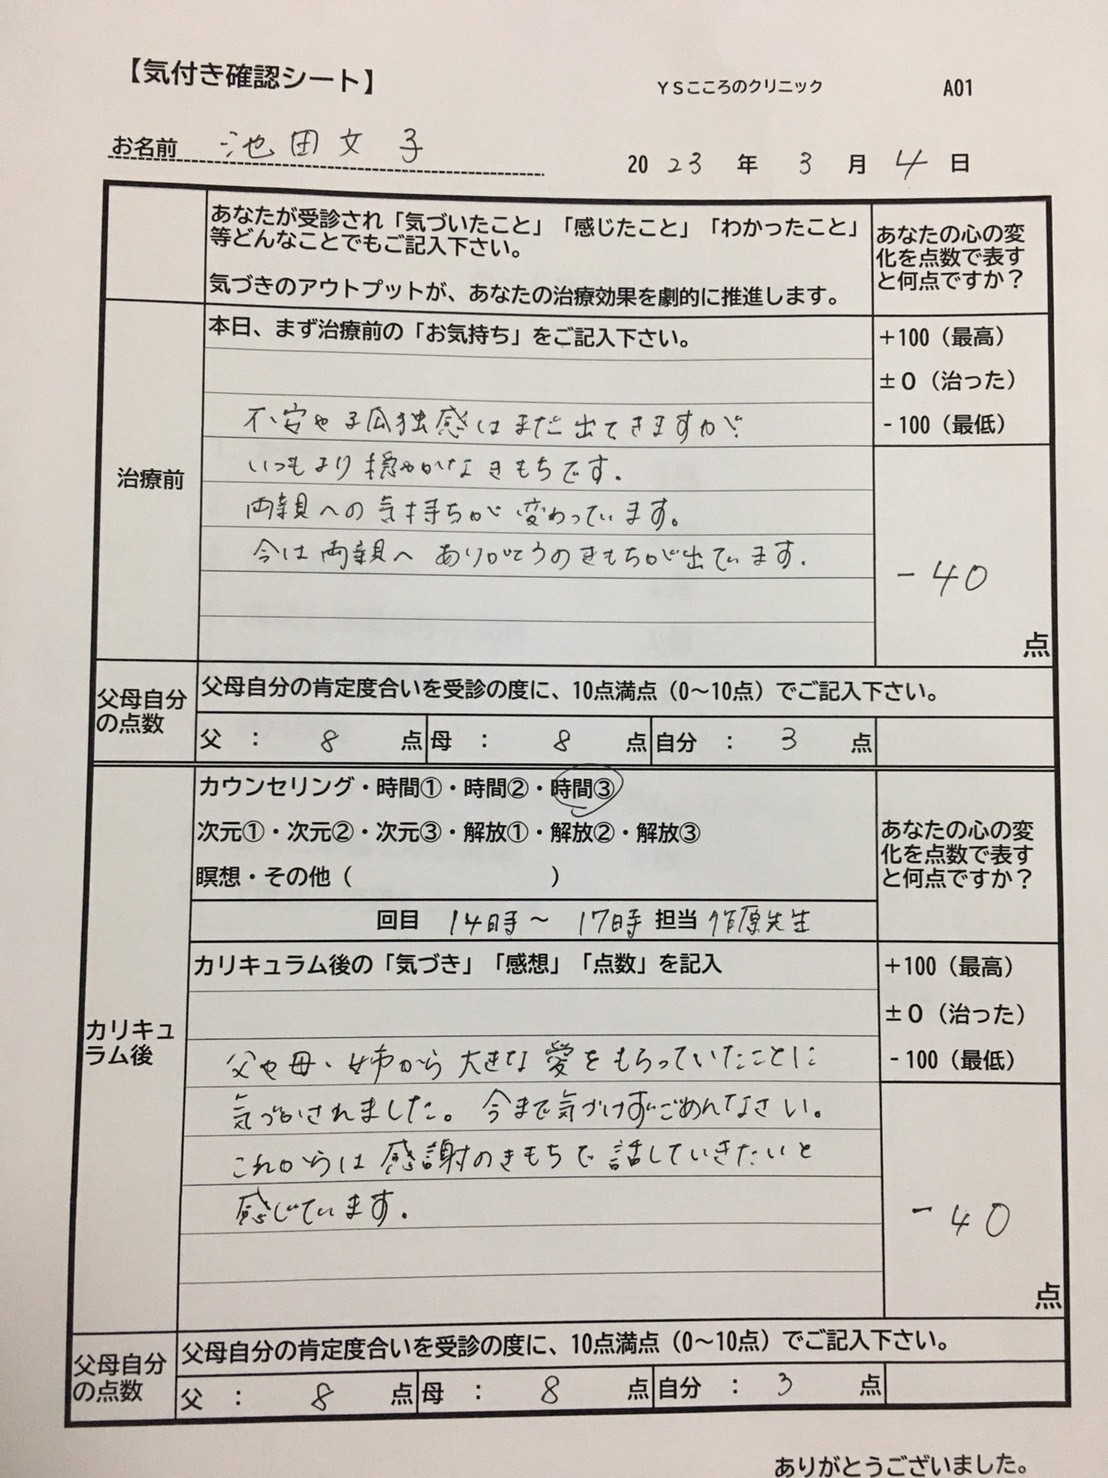 【気付き確認シート】
YSこころのクリニック A01
お名前 池田文子
2023年3月4日
あなたが受診され「気づいたこと」「感じたこと」「わかったこと」
等どんなことでもご記入下さい。
気づきのアウトプットが、あなたの治療効果を劇的に推進します。
あなたの心の変
化を点数で表す
と何点ですか？
治療前
本日、まず治療前の「お気持ち」をご記入下さい。
+100（最高）
±0（治った）
-100（最低）
不安や孤独感はまだ出てきますが
いつもより穏やかなきもちです。
両親への気持ちが変わっています。
今は両親へありがとうのきもちが出ています。
-40
点
父母自分
の点数
父母自分の肯定度合いを受診の度に、10点満点（0～10点）でご記入下さい。
父 ： 8 点 母 ： 8 点 自分 ： 3 点
カリキュ
ラム後
カウンセリング・時間①・時間②・時間③
次元①・次元②・次元③・解放①・解放②・解放③
瞑想・その他（ ）
回目 14時～ 17時 担当 作原先生
あなたの心の変
化を点数で表す
と何点ですか？
カリキュラム後の「気づき」「感想」「点数」を記入
+100（最高）
±0（治った）
-100（最低）
父や母、姉から大きな愛をもらっていたことに
気づかされました。今まで気づけずごめんなさい。
これからは感謝のきもちで話していきたいと
感じています。
-40
点
父母自分
の点数
父母自分の肯定度合いを受診の度に、10点満点（0～10点）でご記入下さい。
父 ： 8 点 母 ： 8 点 自分 ： 3 点
ありがとうございました。